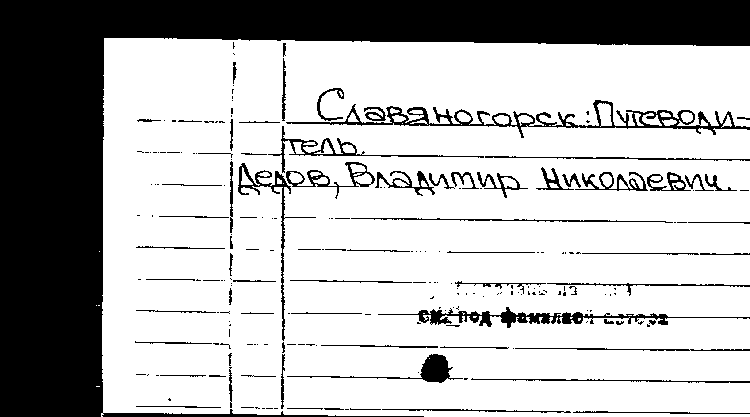 Славяногорск: Путеводи-
тель.
Дедов, Владимир Николаевич.
см. под фамилией автора